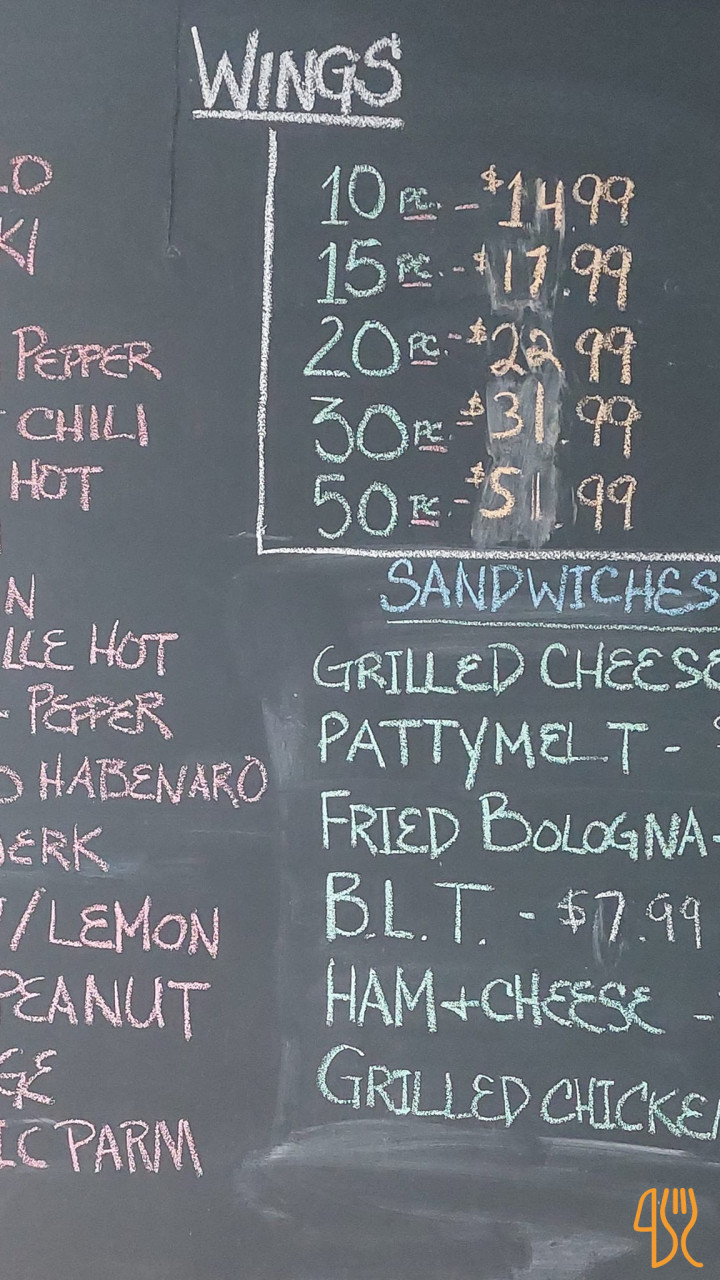 WINGS
10 PC. - $14.99
15 PC. - $17.99
20 PC. - $22.99
30 PC. - $31.99
50 PC. - $51.99
PEPPER
CHILI
HOT
HOT
- PEPPER
HABENARO
/LEMON
PEANUT
PARM
SANDWICHES
GRILLED CHEESE
PATTYMELT -
FRIED BOLOGNA -
B.L.T. - $7.99
HAM + CHEESE -
GRILLED CHICKEN